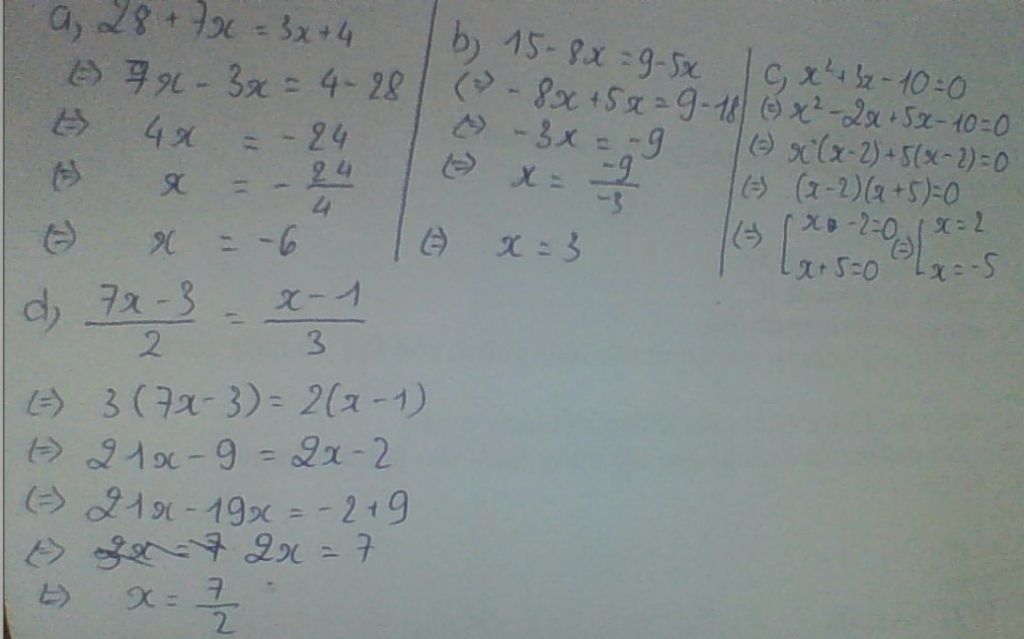 a, 28 + 7x = 3x + 4
(=) 7x - 3x = 4 - 28
(=) 4x = -24
(=) x = - 24/4
(=) x = -6
b, 15 - 8x = 9 - 5x
(=) - 8x + 5x = 9 - 18
(=) -3x = -9
(=) x = -9/-3
(=) x = 3
c, x² + 3x - 10 = 0
(=) x² - 2x + 5x - 10 = 0
(=) x (x - 2) + 5(x - 2) = 0
(=) (x - 2)(x + 5) = 0
(=) [ x - 2 = 0 (=) [ x = 2
x + 5 = 0 x = -5
d, 7x - 3 / 2 = x - 1 / 3
(=) 3(7x - 3) = 2(x - 1)
(=) 21x - 9 = 2x - 2
(=) 21x - 19x = -2 + 9
(=) 2x = 7 2x = 7
(=) x = 7/2